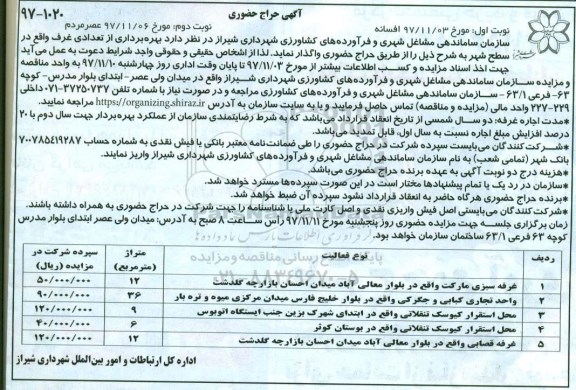 آگهی حراج حضوری
۹۷-۱۰۲۰
نوبت اول: مورخ ۹۷/۱۱/۰۳ افسانه
نوبت دوم: مورخ ۹۷/۱۱/۰۶ عصرمردم
سازمان ساماندهی مشاغل شهری و فرآورده‌های کشاورزی شهرداری شیراز در نظر دارد بهره‌برداری از تعدادی غرف واقع در
سطح شهر به شرح ذیل را از طریق حراج حضوری واگذار نماید. لذا از اشخاص حقیقی و حقوقی واجد شرایط دعوت به عمل می‌آید
جهت اخذ اسناد مزایده و کسب اطلاعات بیشتر از مورخ ۹۷/۱۱/۰۳ تا پایان وقت اداری روز چهارشنبه ۹۷/۱۱/۱۰ به واحد مناقصه
و مزایده سازمان ساماندهی مشاغل شهری و فرآورده‌های کشاورزی شهرداری شیراز واقع در میدان ولی عصر- ابتدای بلوار مدرس- کوچه
۶۳- فرعی ۶۳/۱ - سازمان ساماندهی مشاغل شهری و فرآورده‌های کشاورزی مراجعه و در صورت نیاز با شماره تلفن ۳۷۲۵۰۷۳۷-۰۷۱ داخلی
۲۲۷-۲۲۹ واحد مالی (مزایده و مناقصه) تماس حاصل فرمایید و یا به سایت سازمان به آدرس https://organizing.shiraz.ir مراجعه نمایید.
*مدت اجاره غرفه: دو سال شمسی از تاریخ انعقاد قرارداد می‌باشد که به شرط رضایتمندی سازمان از عملکرد بهره‌بردار جهت سال دوم با ۲۰
درصد افزایش مبلغ اجاره نسبت به سال اول، قابل تمدید می‌باشد.
*شرکت کنندگان می‌بایست سپرده شرکت در حراج حضوری را طی ضمانت‌نامه معتبر بانکی یا فیش نقدی به شماره حساب ۷۰۰۷۸۵۴۱۹۲۸۷
بانک شهر (تمامی شعب) به نام سازمان ساماندهی مشاغل شهری و فرآورده‌های کشاورزی شهرداری شیراز واریز نمایند.
*هزینه درج دو نوبت آگهی به عهده برنده حراج حضوری می‌باشد.
*سازمان در رد یک یا تمام پیشنهادها مختار است در این صورت سپرده‌ها مسترد خواهد شد.
*برنده حراج حضوری هرگاه حاضر به انعقاد قرارداد نشود سپرده آن ضبط خواهد شد.
*شرکت کنندگان می‌بایستی اصل فیش واریزی نقدی و اصل کارت ملی یا شناسنامه را جهت شرکت در حراج حضوری به همراه داشته باشند.
زمان برگزاری جلسه جهت مزایده حضوری روز پنجشنبه مورخ ۹۷/۱۱/۱۱ رأس ساعت ۸ صبح به آدرس: میدان ولی عصر ابتدای بلوار مدرس
کوچه ۶۳ فرعی ۶۳/۱ ساختمان سازمان خواهد بود.
ردیف نوع فعالیت متراژ (مترمربع) سپرده شرکت در مزایده (ریال)
۱ غرفه سبزی مارکت واقع در بلوار معالی آباد میدان احسان بازارچه گلدشت ۱۲ ۵۰/۰۰۰/۰۰۰
۲ واحد تجاری کبابی و جگرکی واقع در بلوار خلیج فارس میدان مرکزی میوه و تره بار ۳۶ ۹۰/۰۰۰/۰۰۰
۳ محل استقرار کیوسک تنقلاتی واقع در ابتدای شهرک بزین جنب ایستگاه اتوبوس ۹ ۱۲۰/۰۰۰/۰۰۰
۴ محل استقرار کیوسک تنقلاتی واقع در بوستان کوثر ۶ ۴۰/۰۰۰/۰۰۰
۵ غرفه قصابی واقع در بلوار معالی آباد میدان احسان بازارچه گلدشت ۱۲ ۱۲۰/۰۰۰/۰۰۰
اداره کل ارتباطات و امور بین‌الملل شهرداری شیراز